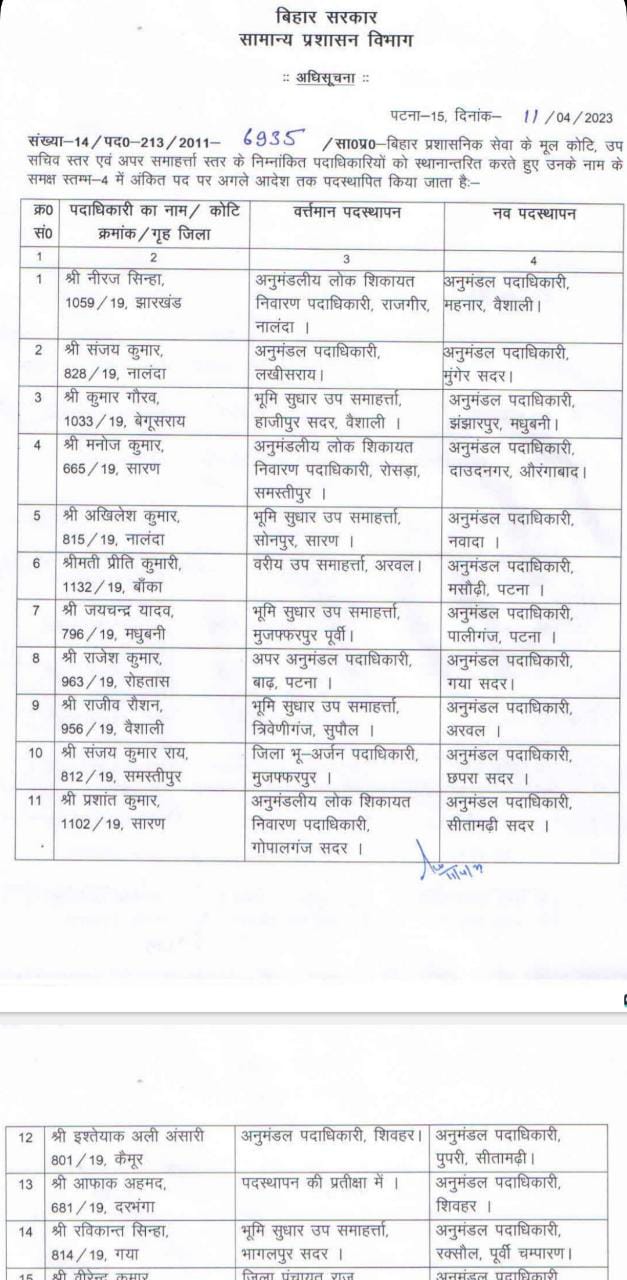 बिहार सरकार
सामान्य प्रशासन विभाग
:: अधिसूचना ::
पटना–15, दिनांक– 11/04/2023
संख्या–14/पद0–213/2011– 6935 /सा0प्र0–बिहार प्रशासनिक सेवा के मूल कोटि, उप
सचिव स्तर एवं अपर समाहर्त्ता स्तर के निम्नांकित पदाधिकारियों को स्थानान्तरित करते हुए उनके नाम के
समक्ष स्तम्भ–4 में अंकित पद पर अगले आदेश तक पदस्थापित किया जाता हैः–
क्र0 पदाधिकारी का नाम/ कोटि वर्त्तमान पदस्थापन नव पदस्थापन
सं0 क्रमांक/गृह जिला
1 2 3 4
1 श्री नीरज सिन्हा, अनुमंडलीय लोक शिकायत अनुमंडल पदाधिकारी,
1059/19, झारखंड निवारण पदाधिकारी, राजगीर, महनार, वैशाली।
नालंदा ।
2 श्री संजय कुमार, अनुमंडल पदाधिकारी, अनुमंडल पदाधिकारी,
828/19, नालंदा लखीसराय। मुंगेर सदर।
3 श्री कुमार गौरव, भूमि सुधार उप समाहर्त्ता, अनुमंडल पदाधिकारी,
1033/19, बेगूसराय हाजीपुर सदर, वैशाली । झंझारपुर, मधुबनी।
4 श्री मनोज कुमार, अनुमंडलीय लोक शिकायत अनुमंडल पदाधिकारी,
665/19, सारण निवारण पदाधिकारी, रोसड़ा, दाउदनगर, औरंगाबाद।
समस्तीपुर ।
5 श्री अखिलेश कुमार, भूमि सुधार उप समाहर्त्ता, अनुमंडल पदाधिकारी,
815/19, नालंदा सोनपुर, सारण । नवादा ।
6 श्रीमती प्रीति कुमारी, वरीय उप समाहर्त्ता, अरवल। अनुमंडल पदाधिकारी,
1132/19, बाँका मसौढ़ी, पटना ।
7 श्री जयचन्द्र यादव, भूमि सुधार उप समाहर्त्ता, अनुमंडल पदाधिकारी,
796/19, मधुबनी मुजफ्फरपुर पूर्वी। पालीगंज, पटना ।
8 श्री राजेश कुमार, अपर अनुमंडल पदाधिकारी, अनुमंडल पदाधिकारी,
963/19, रोहतास बाढ़, पटना । गया सदर।
9 श्री राजीव रौशन, भूमि सुधार उप समाहर्त्ता, अनुमंडल पदाधिकारी,
956/19, वैशाली त्रिवेणीगंज, सुपौल । अरवल ।
10 श्री संजय कुमार राय, जिला भू–अर्जन पदाधिकारी, अनुमंडल पदाधिकारी,
812/19, समस्तीपुर मुजफ्फरपुर । छपरा सदर ।
11 श्री प्रशांत कुमार, अनुमंडलीय लोक शिकायत अनुमंडल पदाधिकारी,
1102/19, सारण निवारण पदाधिकारी, सीतामढ़ी सदर ।
गोपालगंज सदर ।
12 श्री इश्तेयाक अली अंसारी अनुमंडल पदाधिकारी, शिवहर। अनुमंडल पदाधिकारी,
801/19, कैमूर पुपरी, सीतामढ़ी।
13 श्री आफाक अहमद, पदस्थापन की प्रतीक्षा में । अनुमंडल पदाधिकारी,
681/19, दरभंगा शिवहर ।
14 श्री रविकान्त सिन्हा, भूमि सुधार उप समाहर्त्ता, अनुमंडल पदाधिकारी,
814/19, गया भागलपुर सदर । रक्सौल, पूर्वी चम्पारण।
15 श्री वीरेन्द्र कुमार जिला पंचायत राज अनुमंडल पदाधिकारी